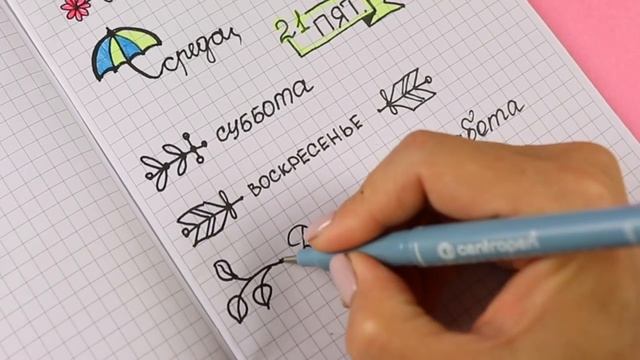 среда,
21 ПЯТ.
СУББОТА
ВОСКРЕСЕНЬЕ
centropen